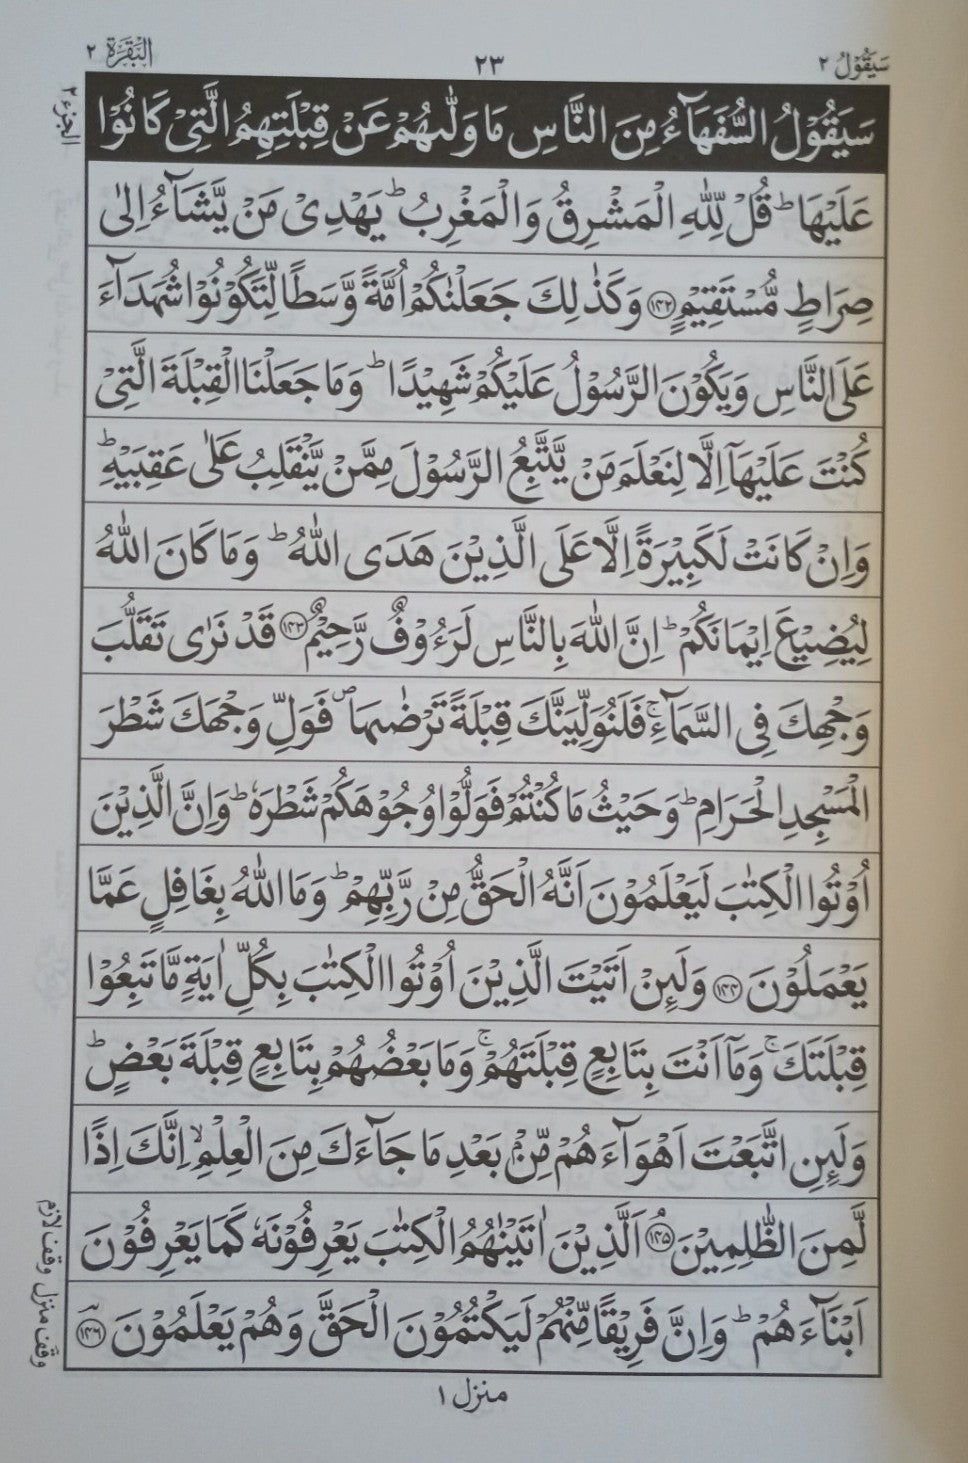 سَيَقُوْلُ ٢ ٢٣ الْبَقَرَة ٢
الجزء ٢
سَيَقُوْلُ السُّفَهَآءُ مِنَ النَّاسِ مَا وَلّٰىهُمْ عَنْ قِبْلَتِهِمُ الَّتِیْ كَانُوْا
عَلَيْهَا ؕ قُلْ لِّلّٰهِ الْمَشْرِقُ وَالْمَغْرِبُ ؕ يَهْدِیْ مَنْ يَّشَآءُ اِلٰی
صِرَاطٍ مُّسْتَقِيْمٍ ﴿١٤٢﴾ وَكَذٰلِكَ جَعَلْنٰكُمْ اُمَّةً وَّسَطًا لِّتَكُوْنُوْا شُهَدَآءَ
عَلَی النَّاسِ وَيَكُوْنَ الرَّسُوْلُ عَلَيْكُمْ شَهِيْدًا ؕ وَمَا جَعَلْنَا الْقِبْلَةَ الَّتِیْ
كُنْتَ عَلَيْهَآ اِلَّا لِنَعْلَمَ مَنْ يَّتَّبِعُ الرَّسُوْلَ مِمَّنْ يَّنْقَلِبُ عَلٰی عَقِبَيْهِ ؕ
وَاِنْ كَانَتْ لَكَبِيْرَةً اِلَّا عَلَی الَّذِيْنَ هَدَی اللّٰهُ ؕ وَمَا كَانَ اللّٰهُ
لِيُضِيْعَ اِيْمَانَكُمْ ؕ اِنَّ اللّٰهَ بِالنَّاسِ لَرَءُوْفٌ رَّحِيْمٌ ﴿١٤٣﴾ قَدْ نَرٰی تَقَلُّبَ
وَجْهِكَ فِی السَّمَآءِ ۚ فَلَنُوَلِّيَنَّكَ قِبْلَةً تَرْضٰىهَا ۪ فَوَلِّ وَجْهَكَ شَطْرَ
الْمَسْجِدِ الْحَرَامِ ؕ وَحَيْثُ مَا كُنْتُمْ فَوَلُّوْا وُجُوْهَكُمْ شَطْرَهٗ ؕ وَاِنَّ الَّذِيْنَ
اُوْتُوا الْكِتٰبَ لَيَعْلَمُوْنَ اَنَّهُ الْحَقُّ مِنْ رَّبِّهِمْ ؕ وَمَا اللّٰهُ بِغَافِلٍ عَمَّا
يَعْمَلُوْنَ ﴿١٤٤﴾ وَلَئِنْ اَتَيْتَ الَّذِيْنَ اُوْتُوا الْكِتٰبَ بِكُلِّ اٰيَةٍ مَّا تَبِعُوْا
قِبْلَتَكَ ۚ وَمَآ اَنْتَ بِتَابِعٍ قِبْلَتَهُمْ ۚ وَمَا بَعْضُهُمْ بِتَابِعٍ قِبْلَةَ بَعْضٍ ؕ
وَلَئِنِ اتَّبَعْتَ اَهْوَآءَهُمْ مِّنْۢ بَعْدِ مَا جَآءَكَ مِنَ الْعِلْمِ ۙ اِنَّكَ اِذًا
لَّمِنَ الظّٰلِمِيْنَ ﴿١٤٥﴾ اَلَّذِيْنَ اٰتَيْنٰهُمُ الْكِتٰبَ يَعْرِفُوْنَهٗ كَمَا يَعْرِفُوْنَ
اَبْنَآءَهُمْ ؕ وَاِنَّ فَرِيْقًا مِّنْهُمْ لَيَكْتُمُوْنَ الْحَقَّ وَهُمْ يَعْلَمُوْنَ ﴿١٤٦﴾
وقف منزل وقف لازم
منزل ١